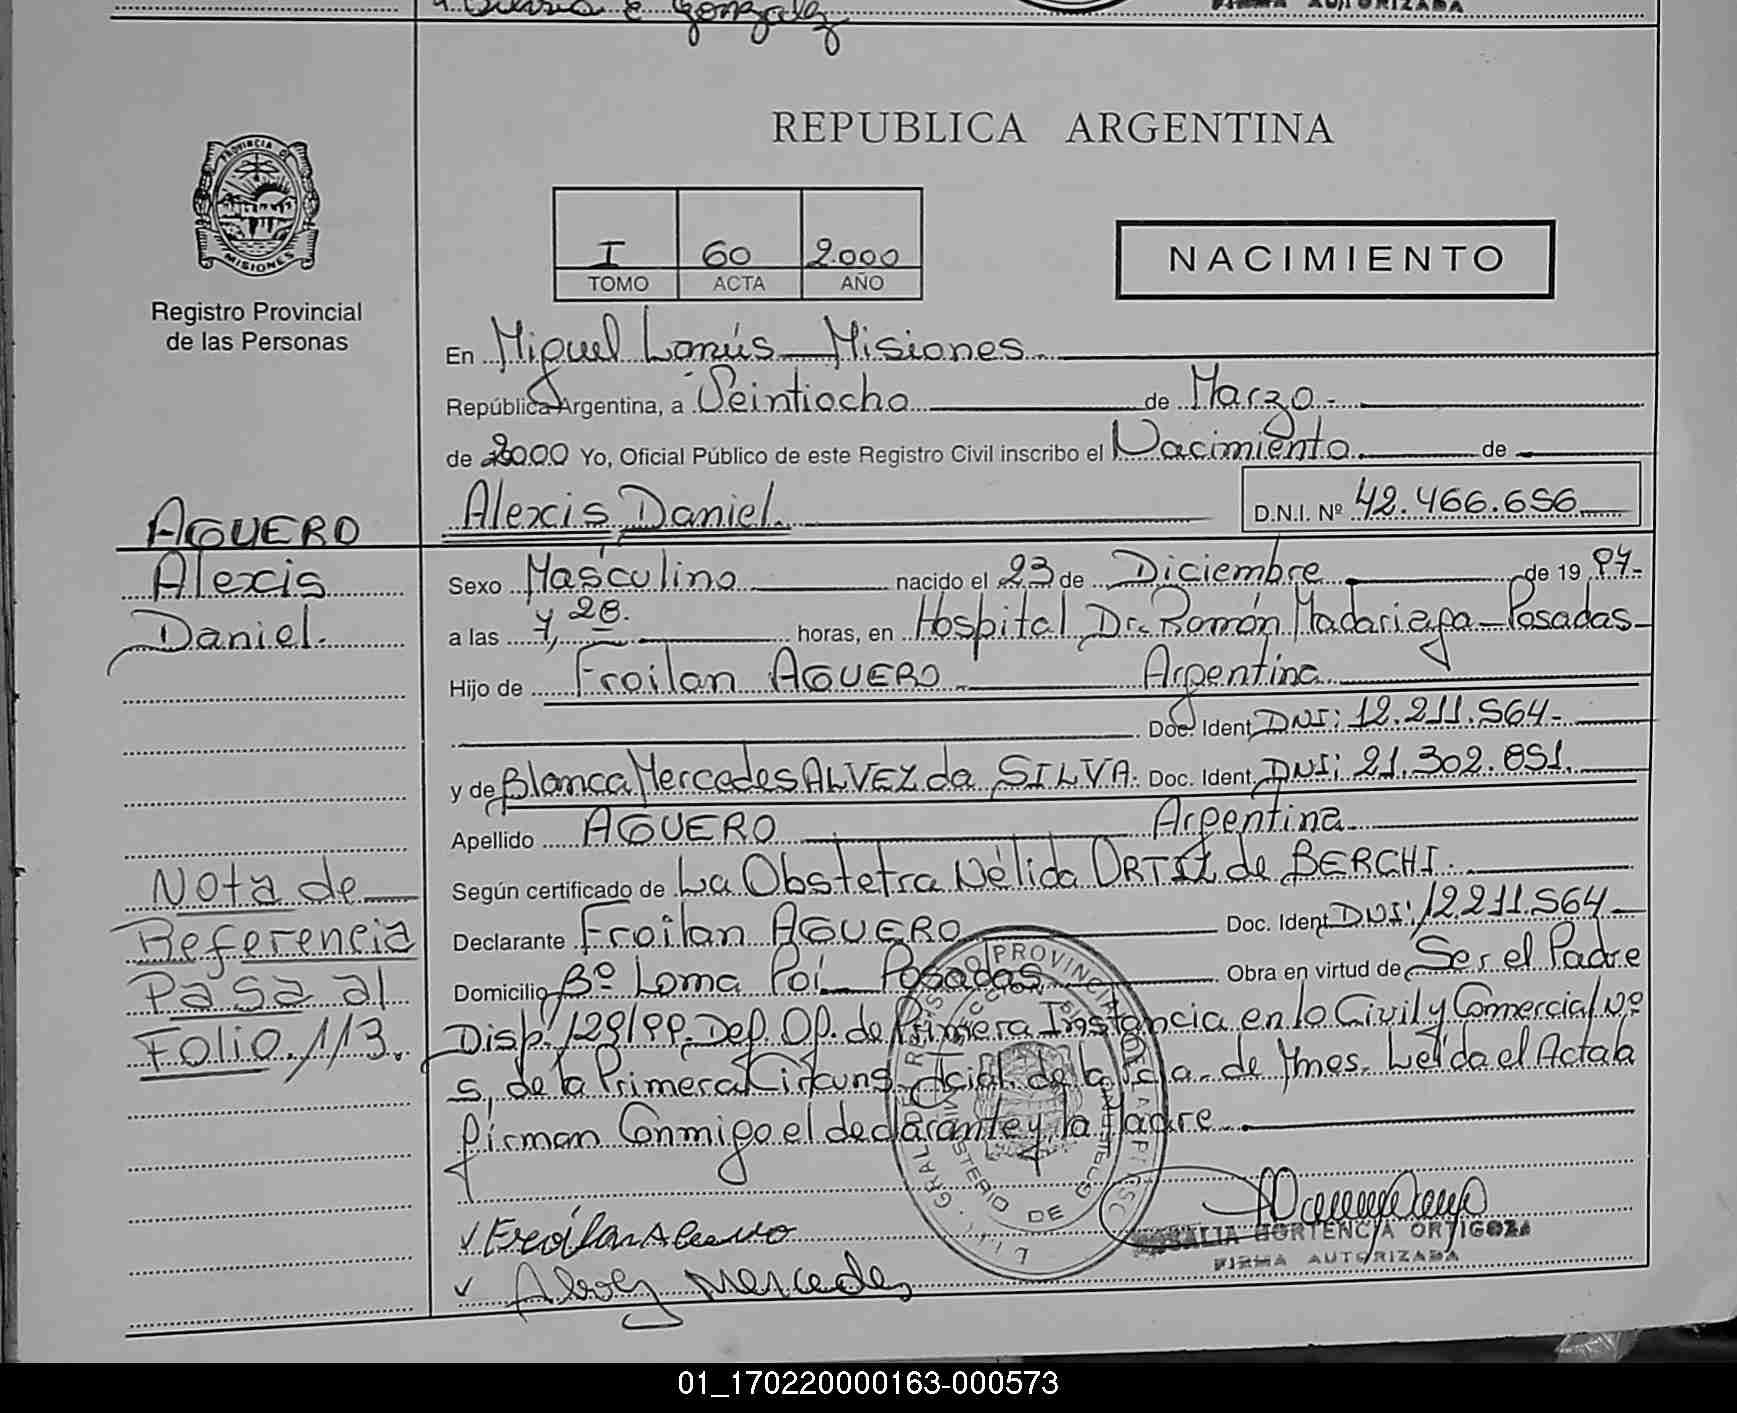 Gonzalez
FIRMA AUTORIZADA
PROVINCIA DE
MISIONES
Registro Provincial
de las Personas
REPUBLICA ARGENTINA
I 60 2000
TOMO ACTA AÑO
NACIMIENTO
En Miguel Lanús - Misiones
República Argentina, a Veintiocho de Marzo.-
de 2000 Yo, Oficial Público de este Registro Civil inscribo el Nacimiento de
Alexis Daniel. D.N.I. Nº 42.466.656
AGUERO
Alexis
Daniel.
Sexo Masculino nacido el 23 de Diciembre de 19
a las 7, y 28. horas, en Hospital Dr. Ramón Madariaga - Posadas -
Hijo de Froilan AGUERO Argentina
Doc. Ident. DNI: 12.211.564-
y de Blanca Mercedes ALVEZ da SILVA. Doc. Ident. DNI: 21.302.851.
Apellido AGUERO Argentina
Según certificado de La Obstetra Nélida ORTIZ de BERCHI.
Declarante Froilan AGUERO Doc. Ident. DNI: 12.211.564-
Domicilio Bº Loma Poí - Posadas Obra en virtud de Ser el Padre
Disp. 129/99. Def. Of. de Primera Instancia en lo Civil y Comercial Nº
5, de la Primera Circuns. Jcial. de la Pcia. de Mnes. Leída el Acta la
firman Conmigo el declarante y la Madre
Nota de
Referencia
Pasa al
Folio 113.
Froilan Aguero
Alvez Mercedes
ROSALIA HORTENCIA ORTIGOZA
FIRMA AUTORIZADA
01_170220000163-000573